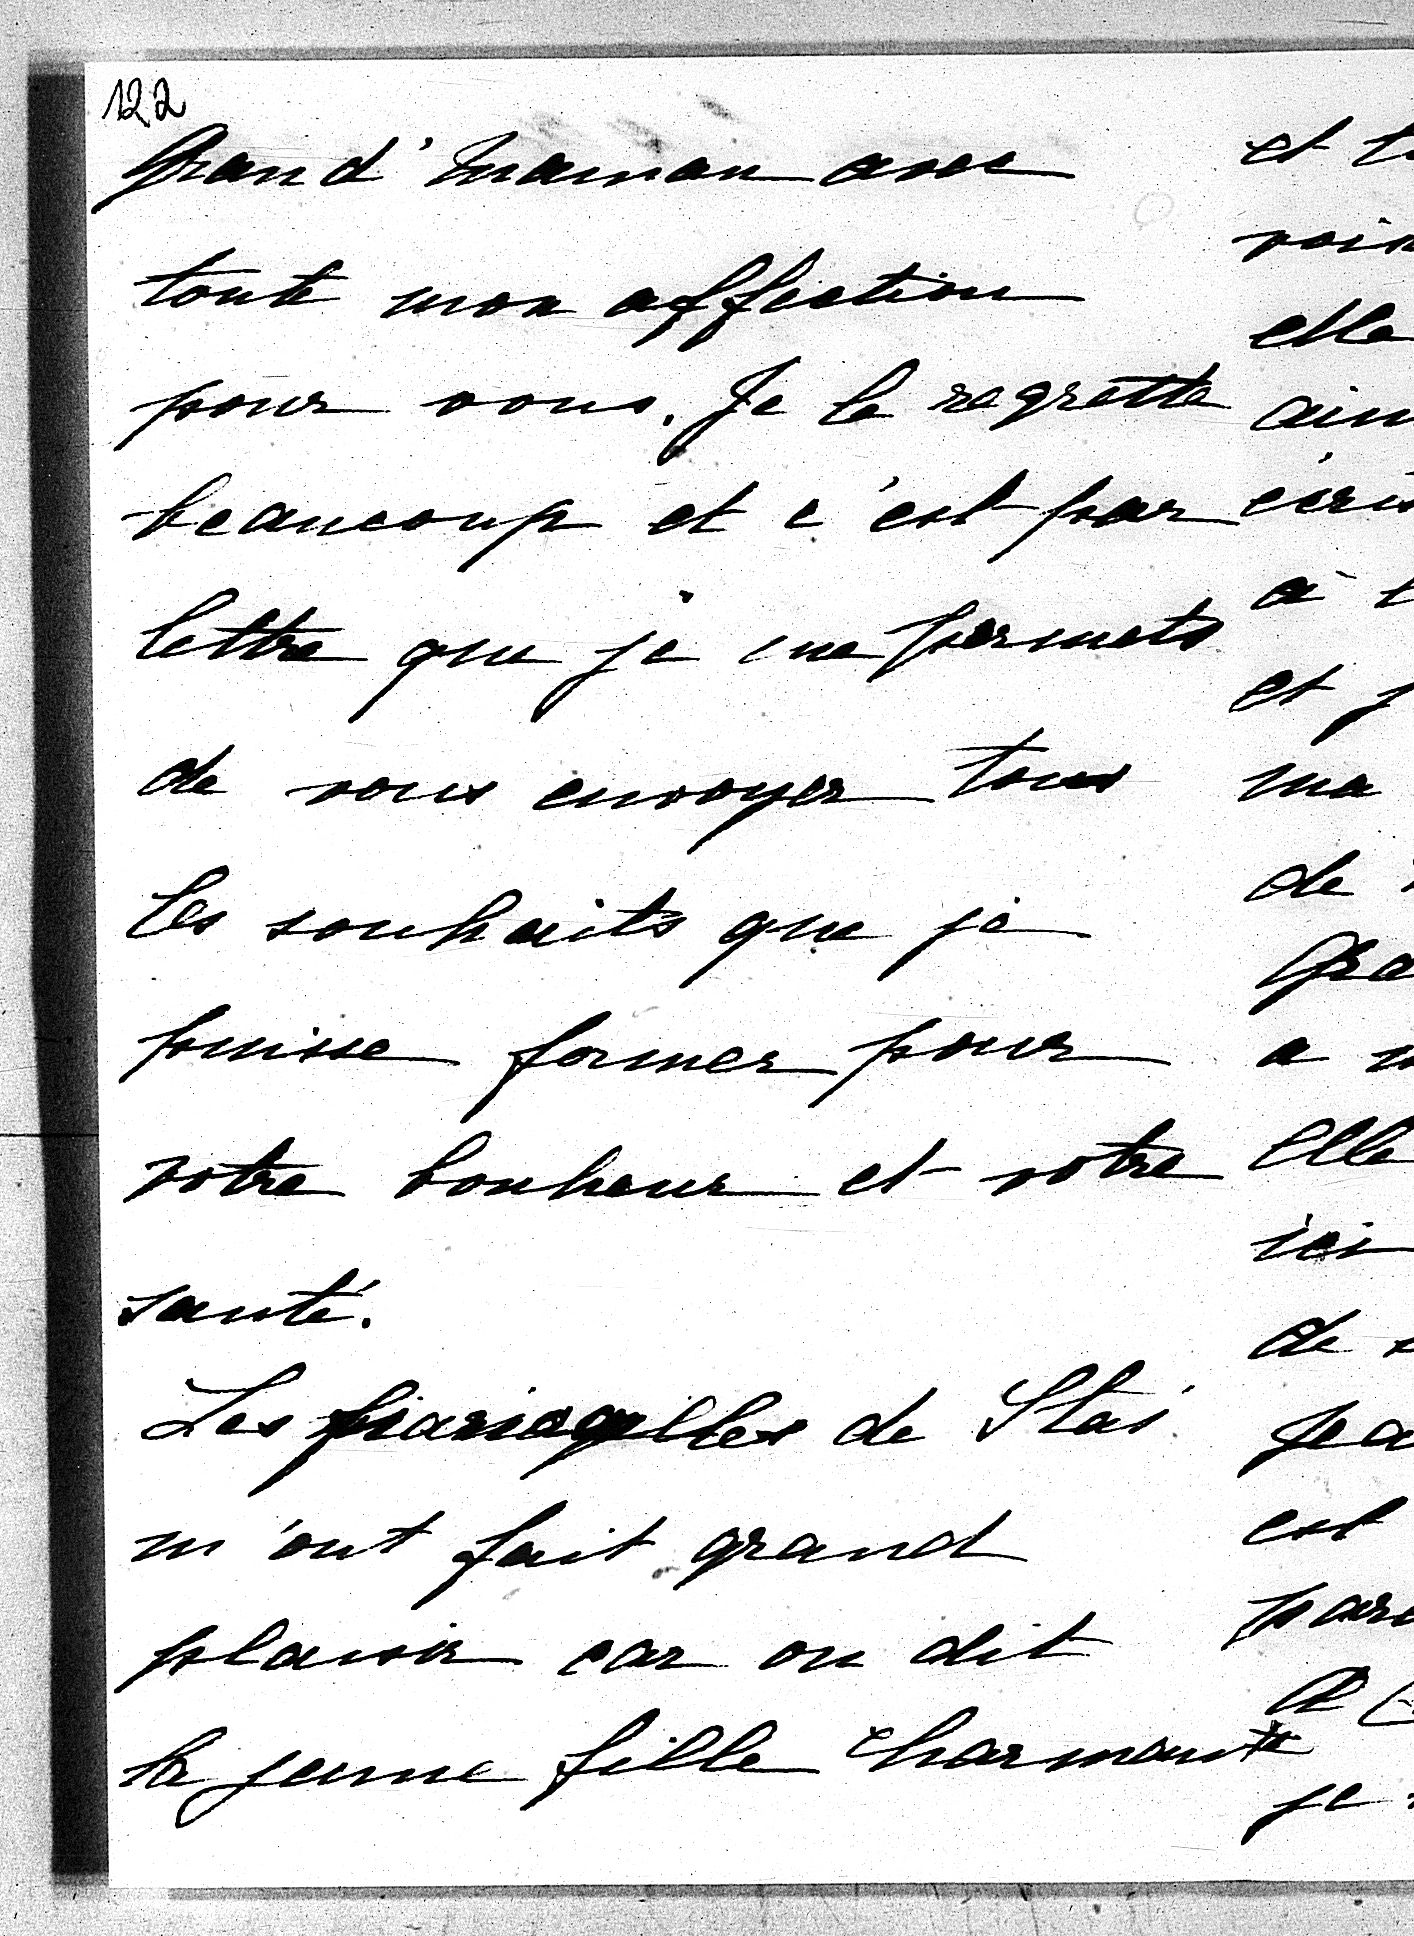 122
Grand'Maman avec
toute mon affection
pour vous. Je le regrette
beaucoup et c'est par
lettre que je me permets
de vous envoyer tous
les souhaits que je
puisse former pour
votre bonheur et votre
santé.
Les fiançailles de Stas
m'ont fait grand
plaisir car on dit
la jeune fille charmante
et
elle
à
et
ma
de
a
Elle
ici
de
est
je